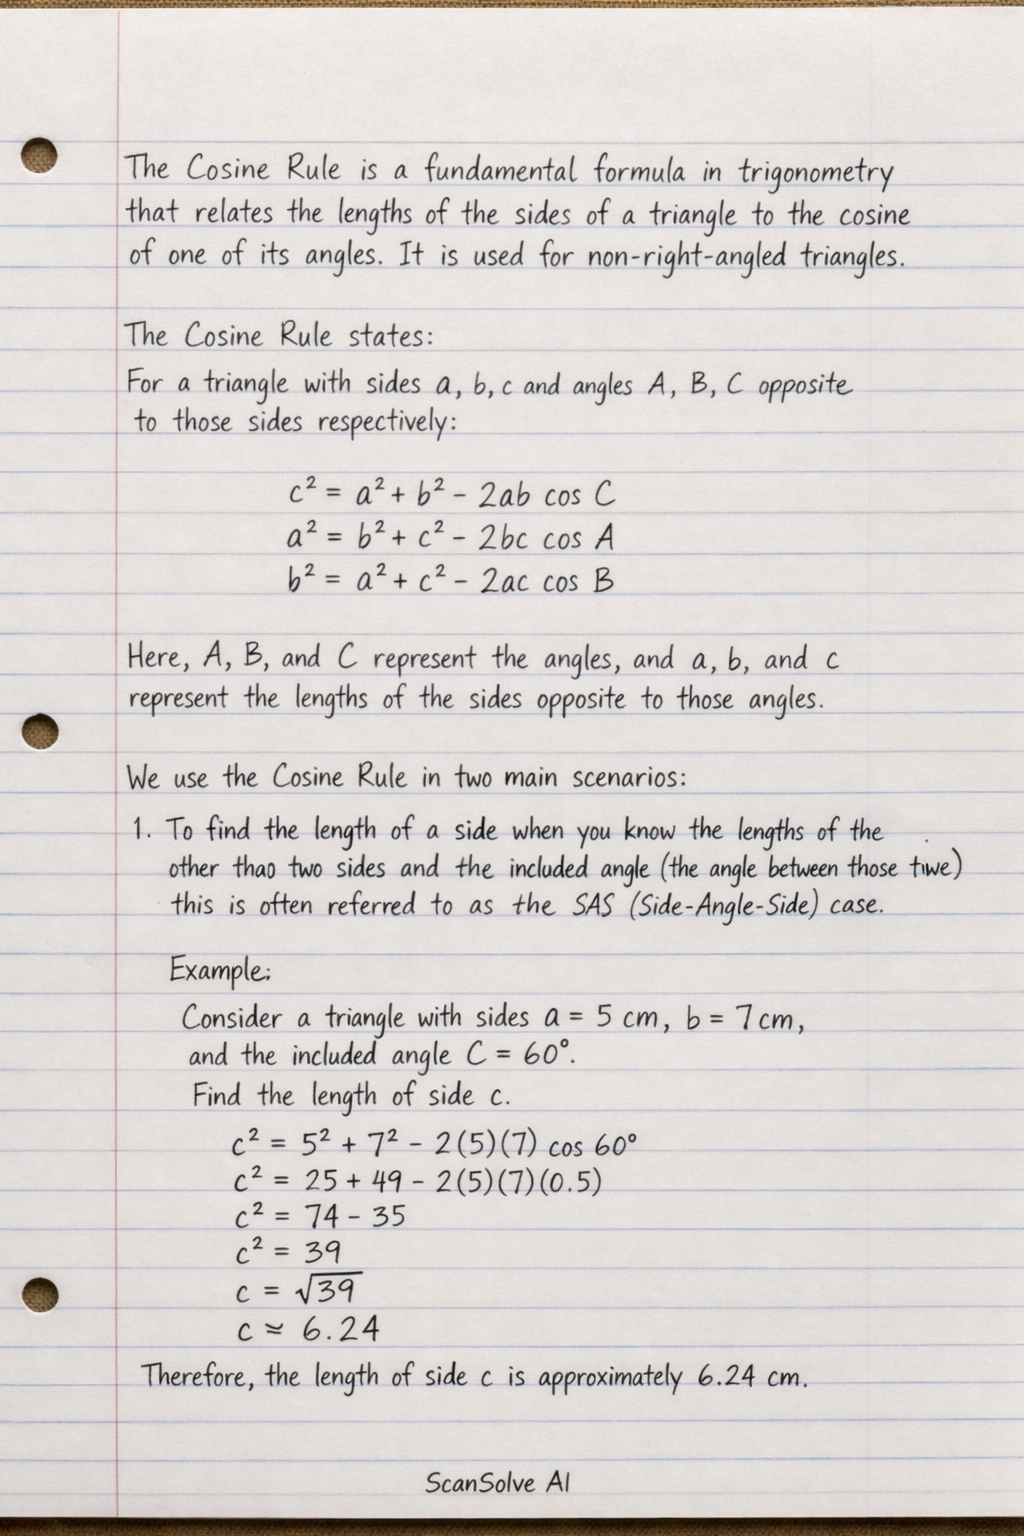 The Cosine Rule is a fundamental formula in trigonometry
that relates the lengths of the sides of a triangle to the cosine
of one of its angles. It is used for non-right-angled triangles.
The Cosine Rule states:
For a triangle with sides a, b, c and angles A, B, C opposite
to those sides respectively:
c² = a² + b² - 2ab cos C
a² = b² + c² - 2bc cos A
b² = a² + c² - 2ac cos B
Here, A, B, and C represent the angles, and a, b, and c
represent the lengths of the sides opposite to those angles.
We use the Cosine Rule in two main scenarios:
1. To find the length of a side when you know the lengths of the
other thao two sides and the included angle (the angle between those tiwe)
this is often referred to as the SAS (Side-Angle-Side) case.
Example:
Consider a triangle with sides a = 5 cm, b = 7 cm,
and the included angle C = 60°.
Find the length of side c.
c² = 5² + 7² - 2(5)(7) cos 60°
c² = 25 + 49 - 2(5)(7)(0.5)
c² = 74 - 35
c² = 39
c = √39
c ≃ 6.24
Therefore, the length of side c is approximately 6.24 cm.
ScanSolve AI